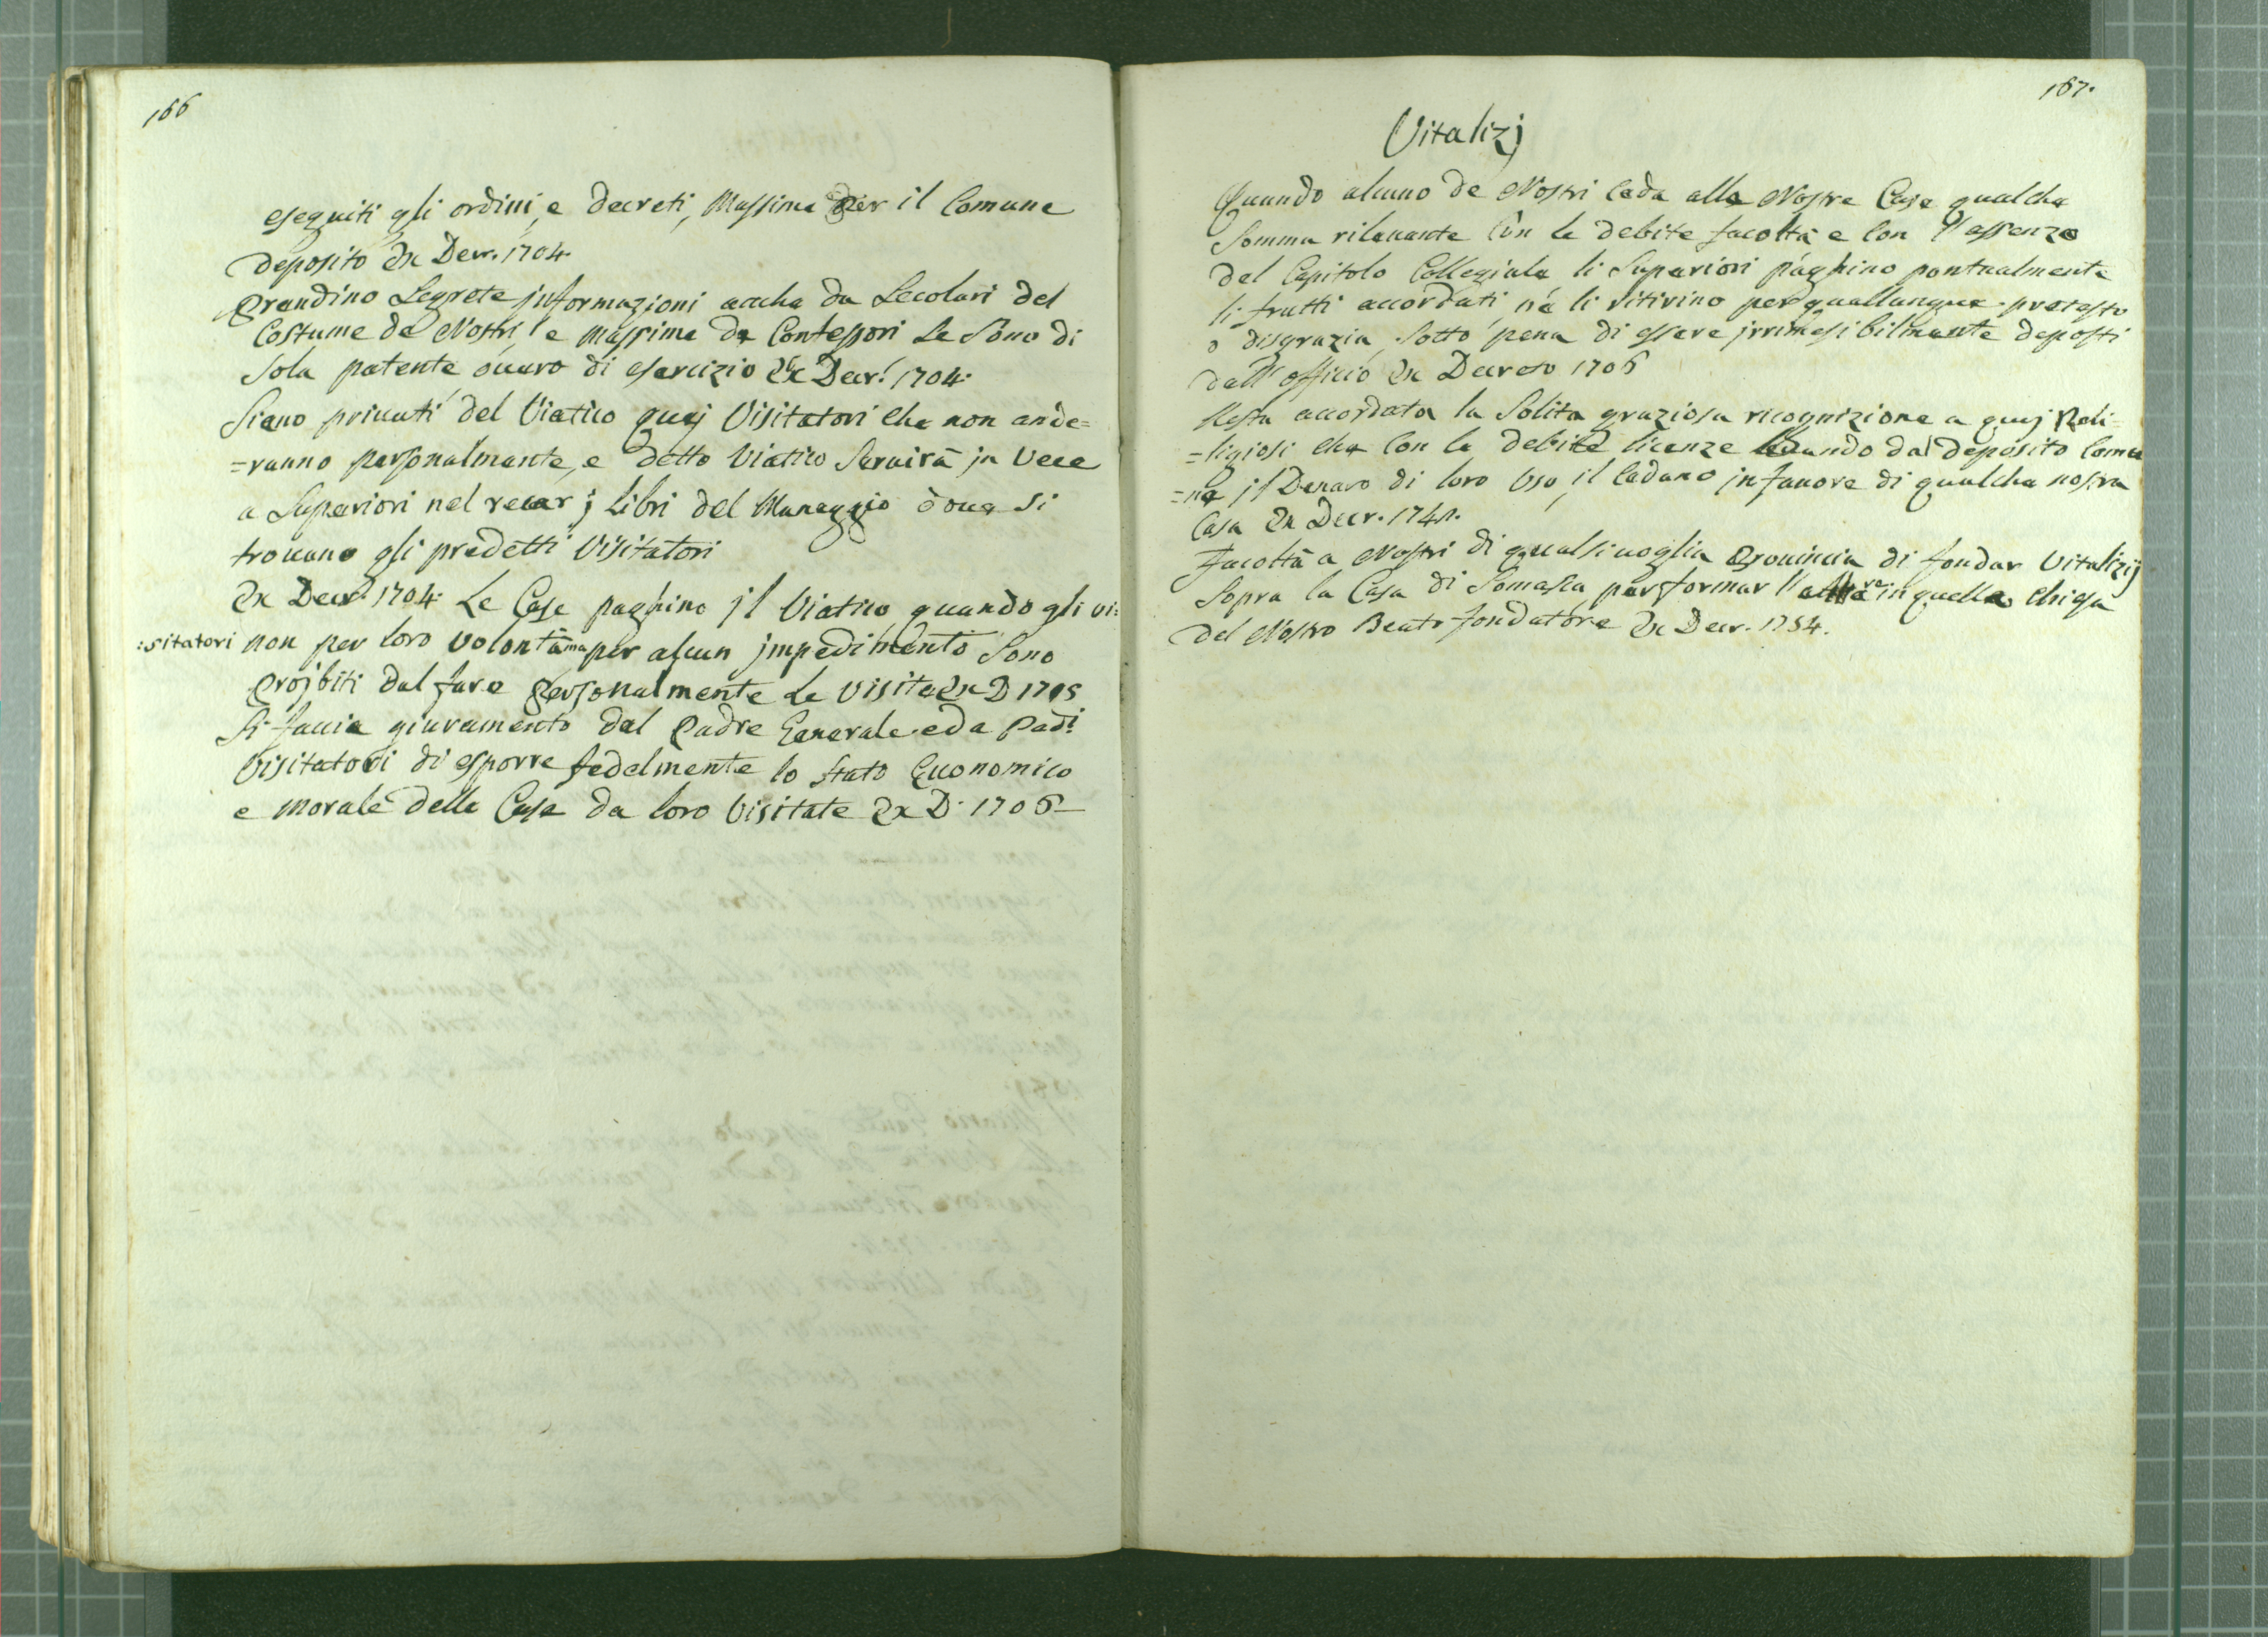 166
eseguiti gli ordini, e decreti, Massime per il Comune
deposito Ex Decr. 1704.
Prendino Segrete informazioni anche da Secolari del
Costume de Nostri, e massime de Confessori se sono di
sola patente ouuero di esercizio Ex Decr. 1704.
Siano priuati del Viatico quej Visitatori che non ande=
=ranno personalmente, e detto Viatico Seruirà in Vece
a Superiori nel recar j Libri del Maneggio doue si
trouano gli predetti Visitatori
Ex Decr. 1704. Le Case paghino jl Viatico, quando gli vi:
:sitatori non per loro volontà ma per alcun jmpedimento Sono
projbiti dal fare personalmente le visite Ex D 1705
Si faccia giuramento dal Padre Generale e da Padi
Visitatori di esporre fedelmente lo stato Economico
e morale delle Case da loro Visitate Ex D. 1706
167.
Vitalizj
Quando alcuno de Nostri Ceda alle Nostre Case qualche
Somma rileuante Con le debite facoltà e Con l'assenzo
del Capitolo Collegiale li Superiori paghino pontualmente
li frutti accordati, nè li ritirino per quallunque pretesto
o disgrazia, Sotto pena di essere jrrimesibilmente deposti
dall'officio Ex Decreto 1706
Resta accordata la Solita graziosa ricognizione a quej Reli=
=ligiosi che Con le debite licenze leuando dal deposito Comu
=ne jl Denaro di loro Uso, il Cedano in fauore di qualche nostra
Casa Ex Decr. 1741.
Facoltà a Nostri di qualsiuoglia Prouincia di fondar Vitalizij
Sopra la Casa di Somasca per formar l'altare in quella Chiesa
del Nostro Beato fondatore Ex Decr. 1754.